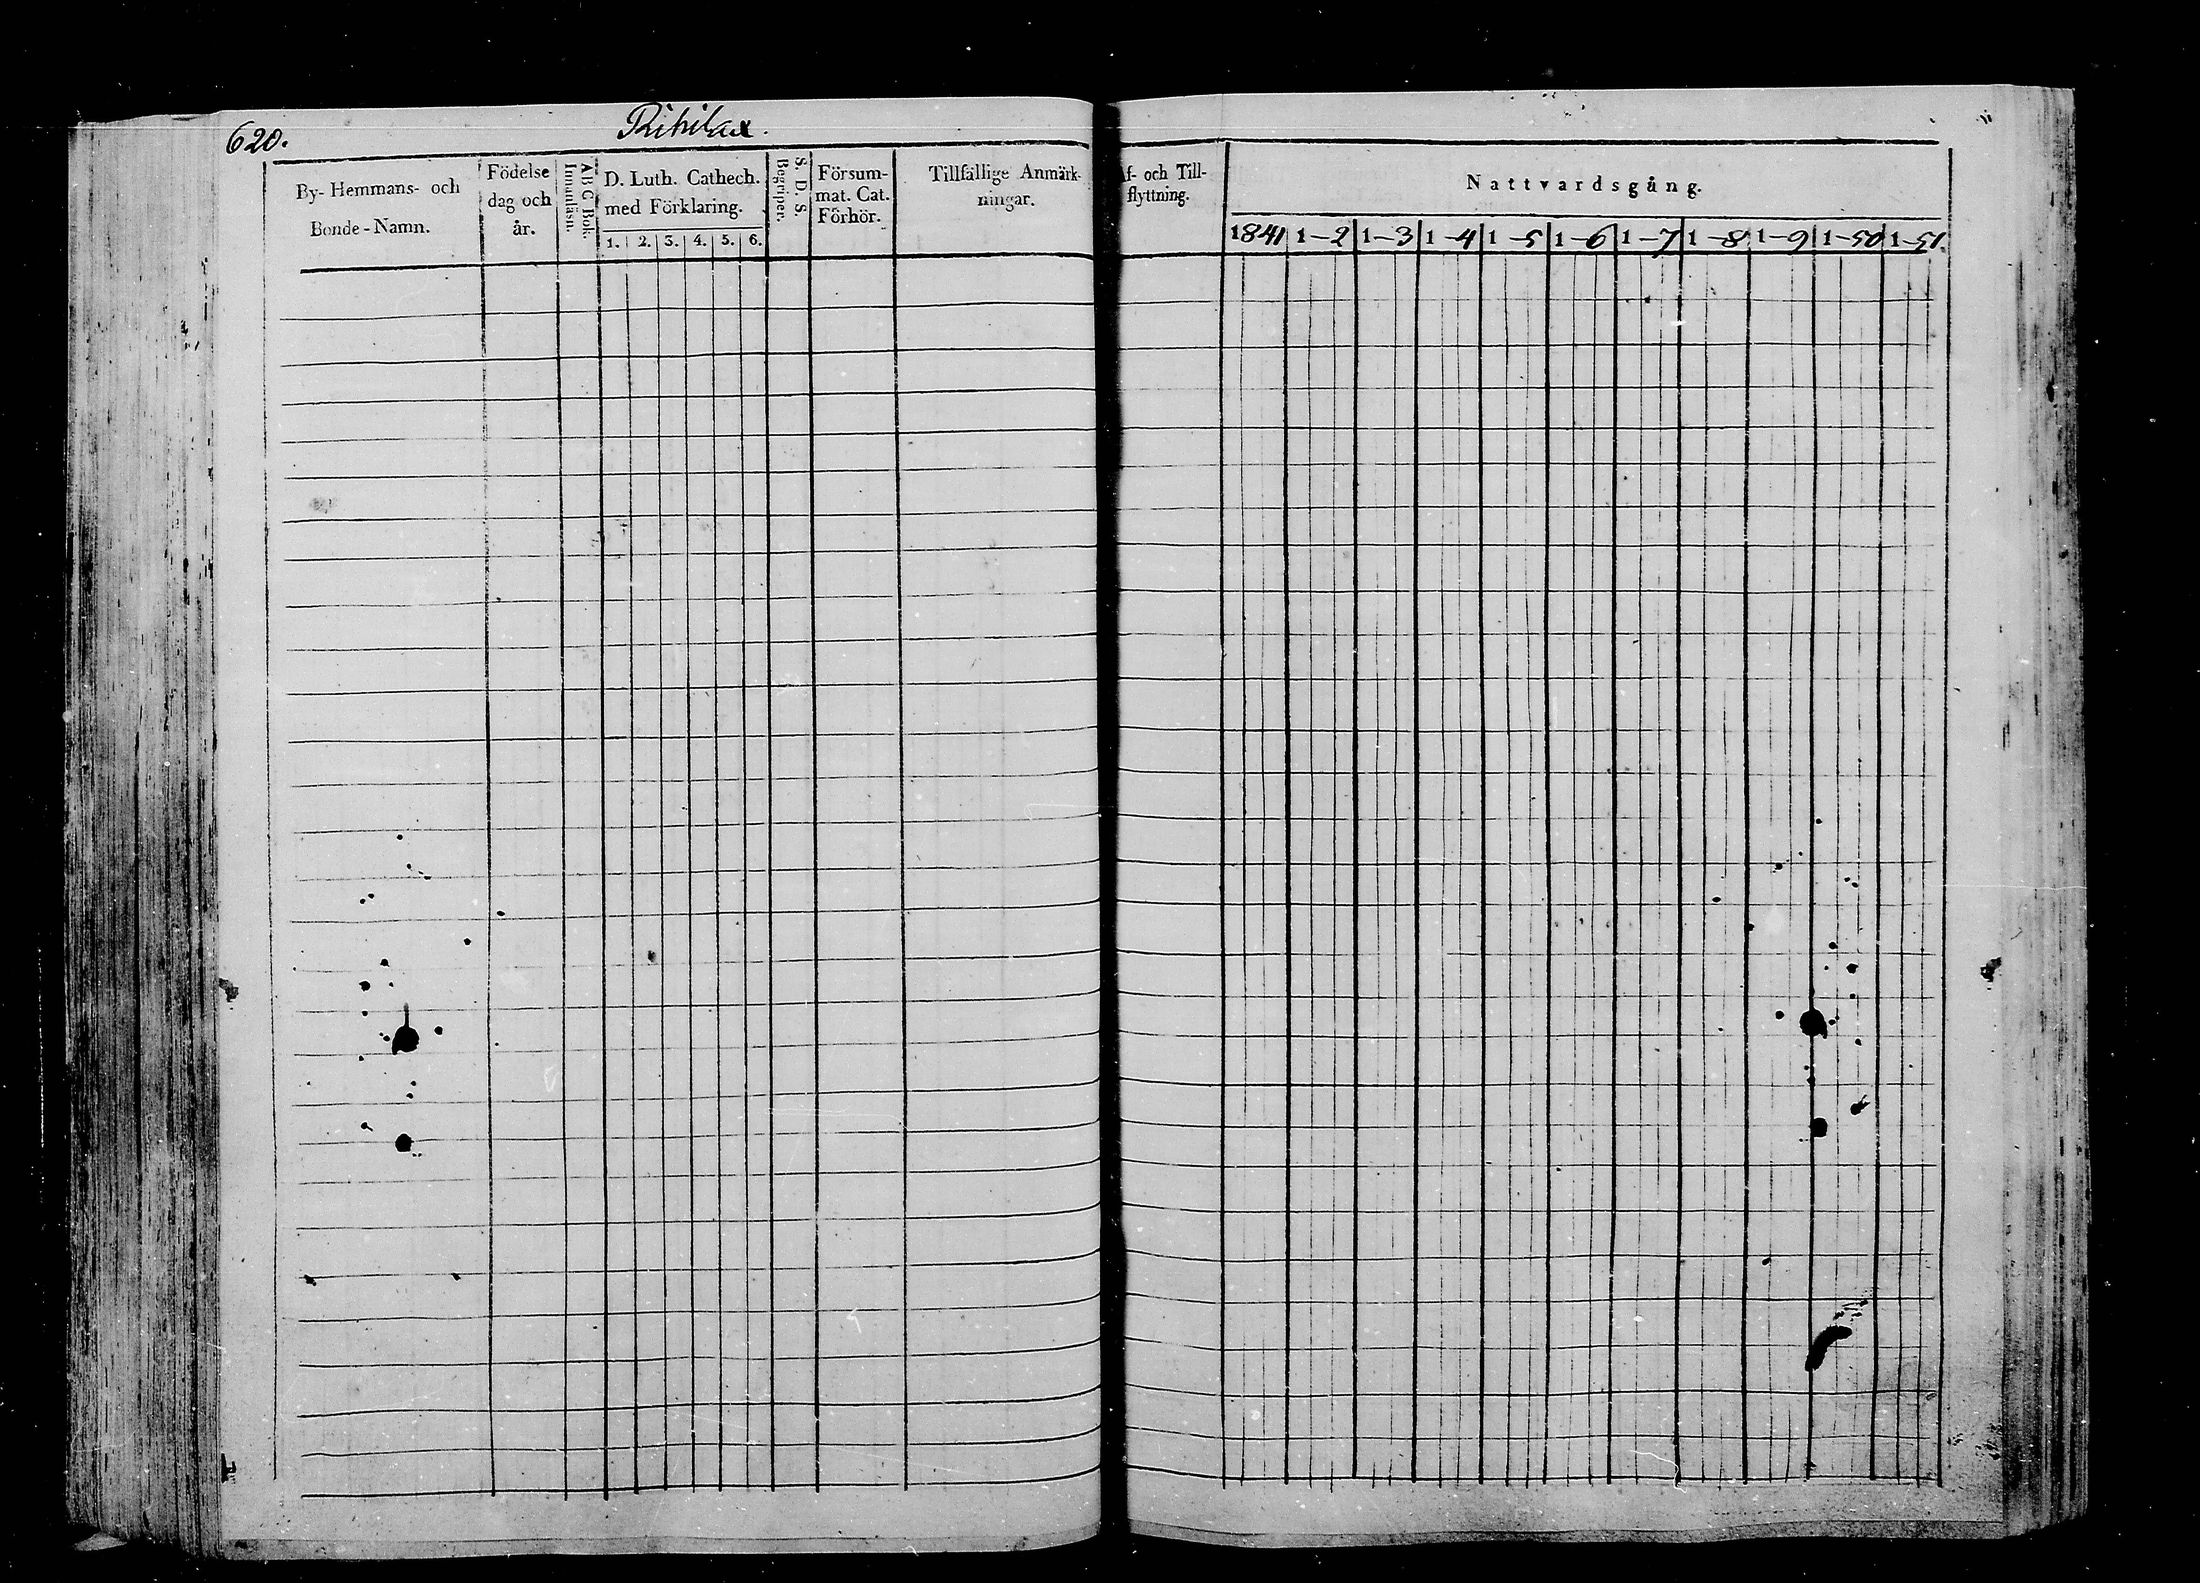 620.
Pihilax.
By- Hemmans- och
Bonde-Namn.
Födelse
dag och
år.
ABC Bok.
Innanläsn.
D. Luth. Cathech.
med Förklaring.
1. 2. 3. 4. 5. 6.
S. D. S.
Begriper.
Försum-
mat. Cat.
Förhör.
Tillfällige Anmärk-
ningar.
f- och Till-
flyttning.
Nattvardsgång.
1841 1-2 1-3 1-4 1-5 1-6 1-7 1-8 1-9 1-50 1-51.